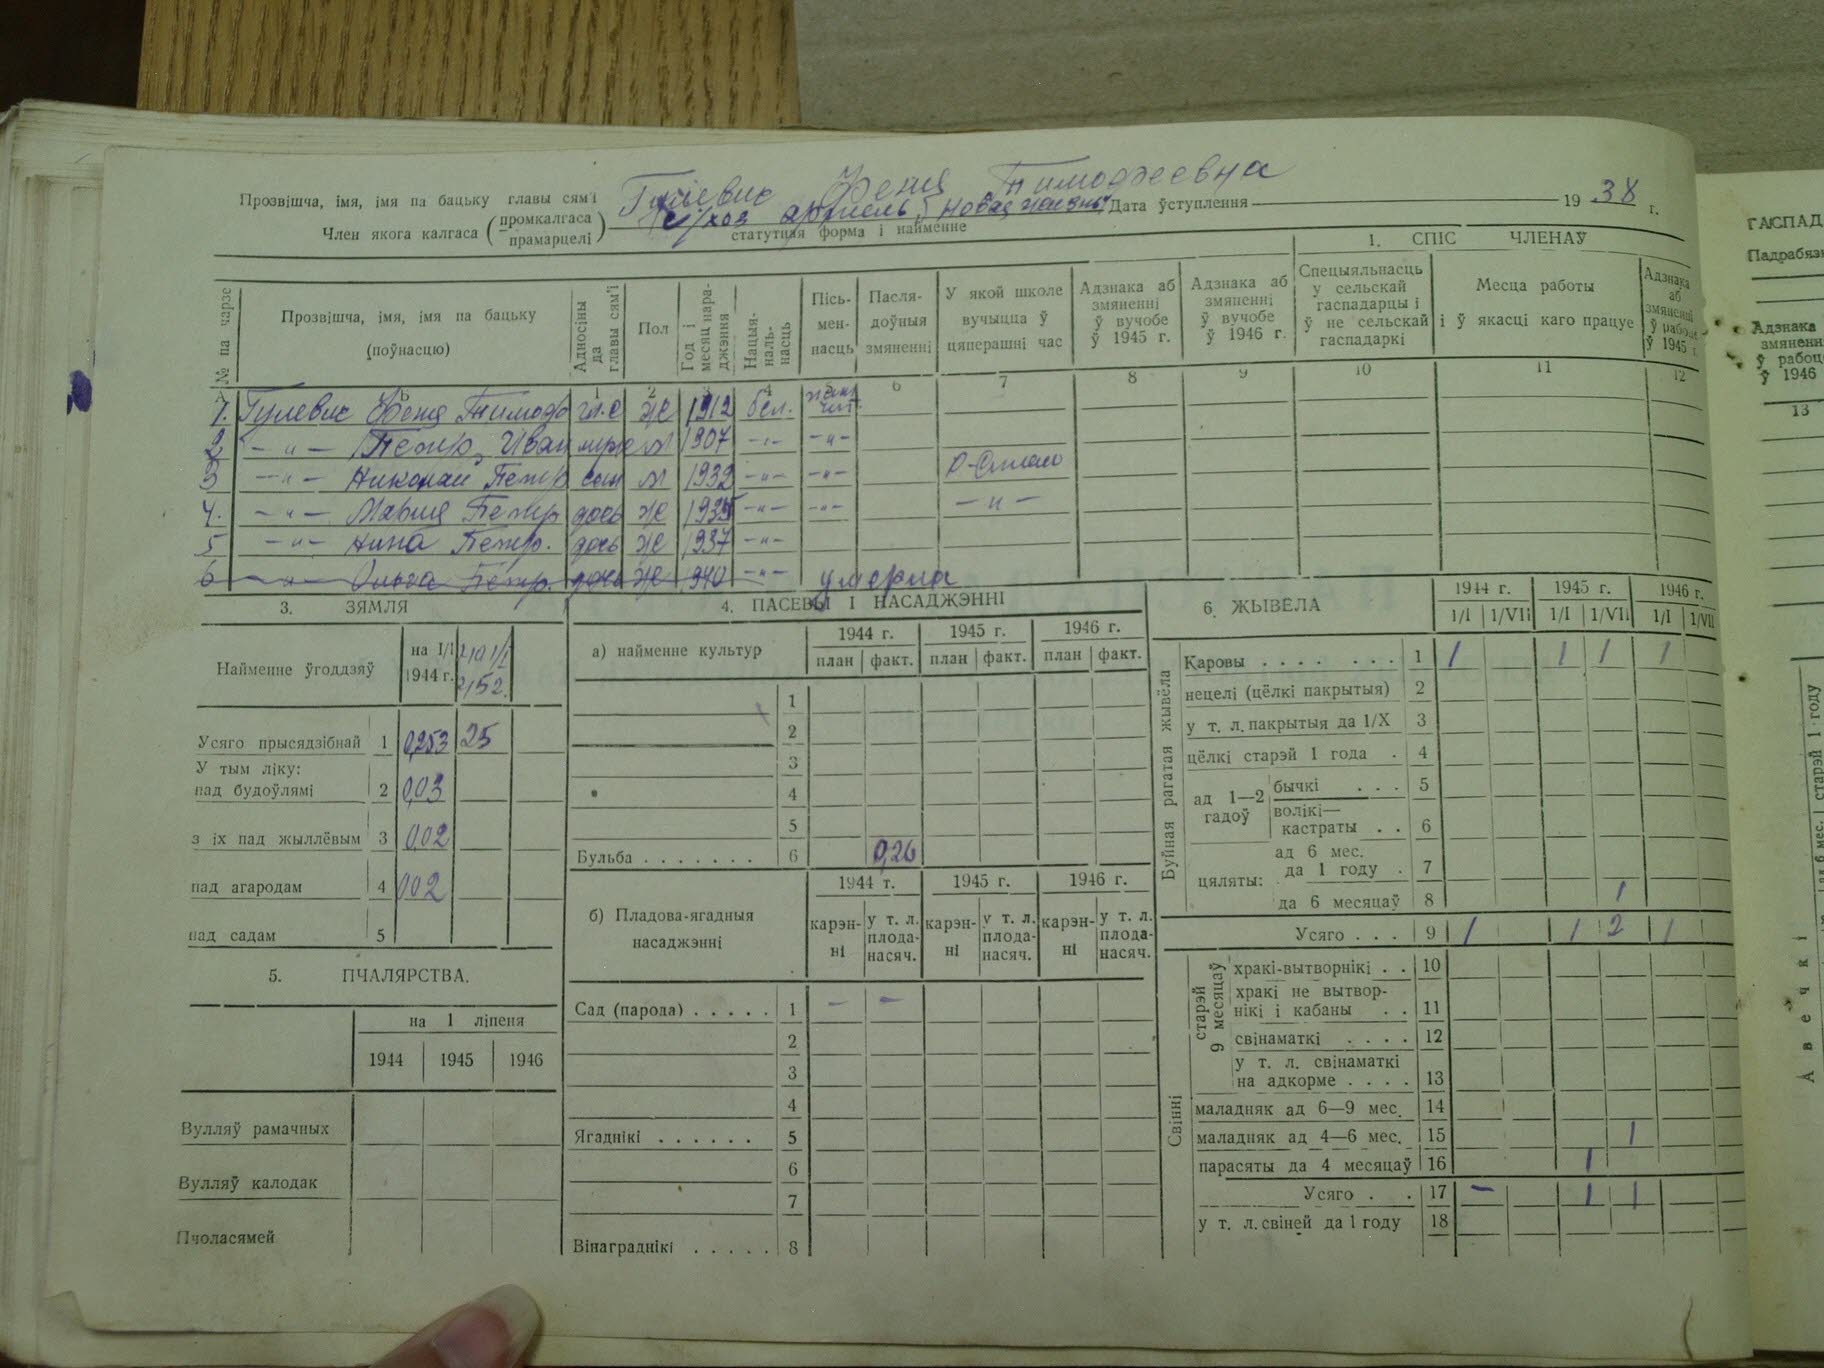 Прозвішча, імя, імя па бацьку главы сям'і Гулевис Феня Тимофеевна
Член якога калгаса (промкалгаса прамарцелі) с/хоз артель „Новая жизнь" Дата ўступлення 1938 г.
статутная форма і найменне
1. СПІС ЧЛЕНАЎ
№ па чарзе
Прозвішча, імя, імя па бацьку (поўнасцю)
Адносіны да главы сям'і
Пол
Год і месяц нараджэння
Нацыянальнасць
Пісьменнасць
Паслядоўныя змяненні
У якой школе вучыцца ў цяперашні час
Адзнака аб змяненні ў вучобе ў 1945 г.
Адзнака аб змяненні ў вучобе ў 1946 г.
Спецыяльнасць у сельскай гаспадарцы і ў не сельскай гаспадаркі
Месца работы і ў якасці каго працуе
Адзнака аб змяненні ў рабоце ў 1945 г.
1 2 3 4 5 6 7 8 9 10 11 12
1. Гулевис Феня Тимоф гл.с Ж 1912 бел.
2 —"— Петр Иван муж М 1907 —"— —"—
3 —"— Николай Петр сын М 1932 —"— —"—
4. —"— Мария Петр дочь Ж 1935 —"— —"— —"—
5 —"— Нина Петр. дочь Ж 1937 —"—
6 —"— Ольга Петр. дочь Ж 1940 —"— умерла
3. ЗЯМЛЯ
Найменне ўгоддзяў
на 1/I 1944 г.
Усяго прысядзібнай 1 0,253 25
У тым ліку:
пад будоўлямі 2 0,03
з іх пад жыллёвым 3 0,02
пад агародам 4 002
пад садам 5
5. ПЧАЛЯРСТВА.
на 1 ліпеня
1944 1945 1946
Вулляў рамачных
Вулляў калодак
Пчоласямей
4. ПАСЕВЫ І НАСАДЖЭННІ
а) найменне культур
1944 г. 1945 г. 1946 г.
план факт. план факт. план факт.
1
2
3
4
5
Бульба . . . . . . . 6 0,26
б) Пладова-ягадныя насаджэнні
1944 г. 1945 г. 1946 г.
карэнні у т. л. плоданасяч. карэнні у т. л. плоданасяч. карэнні у т. л. плоданасяч.
Сад (парода) . . . . . 1 — —
2
3
4
Ягаднікі . . . . . . 5
6
7
Вінаграднікі . . . . . 8
6. ЖЫВЁЛА
1944 г. 1945 г. 1946 г.
1/I 1/VII 1/I 1/VII 1/I 1/VII
Буйная рагатая жывёла
Каровы . . . . . . . 1 1 1 1 1
нецелі (цёлкі пакрытыя) 2
у т. л. пакрытыя да 1/X 3
цёлкі старэй 1 года . 4
ад 1—2 гадоў
бычкі . . . 5
волікі—кастраты . . 6
цяляты:
ад 6 мес. да 1 году . 7
да 6 месяцаў 8 1
Усяго . . . 9 1 1 2 1
Свінні
старэй 9 месяцаў
хракі-вытворнікі . . 10
хракі не вытворнікі і кабаны . . 11
свінаматкі . . . . 12
у т. л. свінаматкі на адкорме . . . . 13
маладняк ад 6—9 мес. 14
маладняк ад 4—6 мес. 15 1
парасяты да 4 месяцаў 16 1
Усяго . . 17 — 1 1
у т. л. свіней да 1 году 18
ГАСПАД
Адзнака
змяненн
ў рабоц
ў 1946
13
старэй 1 году
Авечкі